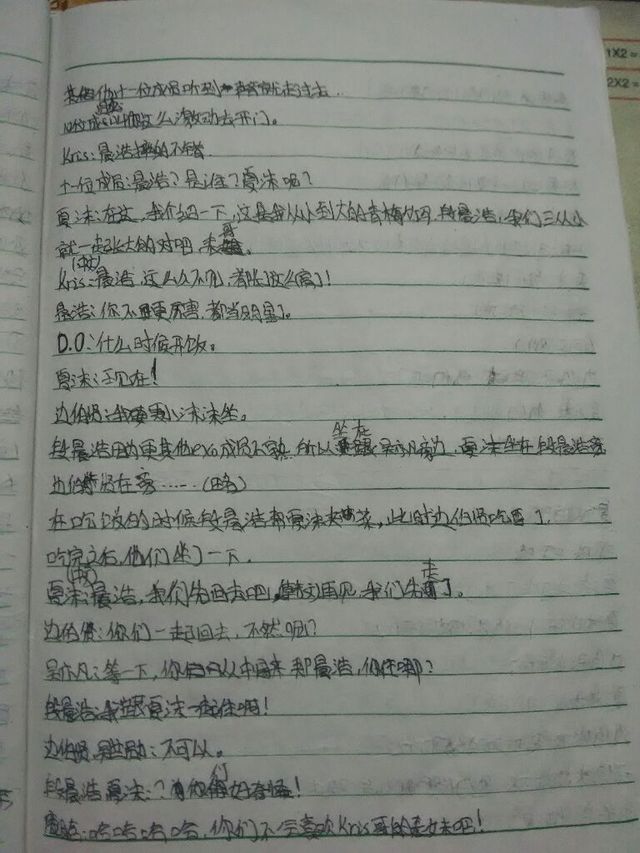 1X2=
2X2=
其他十一位成员听到声音就走过去.
么激动去开门。
Kris:晨浩
十一位成员:晨浩?是谁?夏沫呢?
夏沫:在这,我介绍一下,这是我从小到大的青梅竹马,段晨浩,我们三从小
就一起长大的对吧,哥
Kris:(中文)晨浩 这么久不见,都长这么高了!
晨浩:你不更厉害,都当明星了。
D.O:什么时候开饭。
夏沫:现在!
边伯贤:我要更小沫沫坐。
段晨浩因为更其他exo成员不熟,所以坐在吴亦凡旁边,夏沫坐在段晨浩旁
边伯贤在旁……(略)
在吃饭的时候段晨浩帮夏沫夹菜,此时边伯贤吃醋了
吃完之后,他们坐了一下.
夏沫:(中文)晨浩,我们先回去吧!再见,我们先走了。
边伯贤:你们一起回去,不然呢?
吴亦凡:等一下,你从中国来 那晨浩,你住哪?
段晨浩:我跟夏沫一起住啊!
边伯贤,:不可以。
段晨浩 夏沫:?你们好奇怪!
:哈哈哈哈,你们不会喜欢Kris哥的妹妹吧!